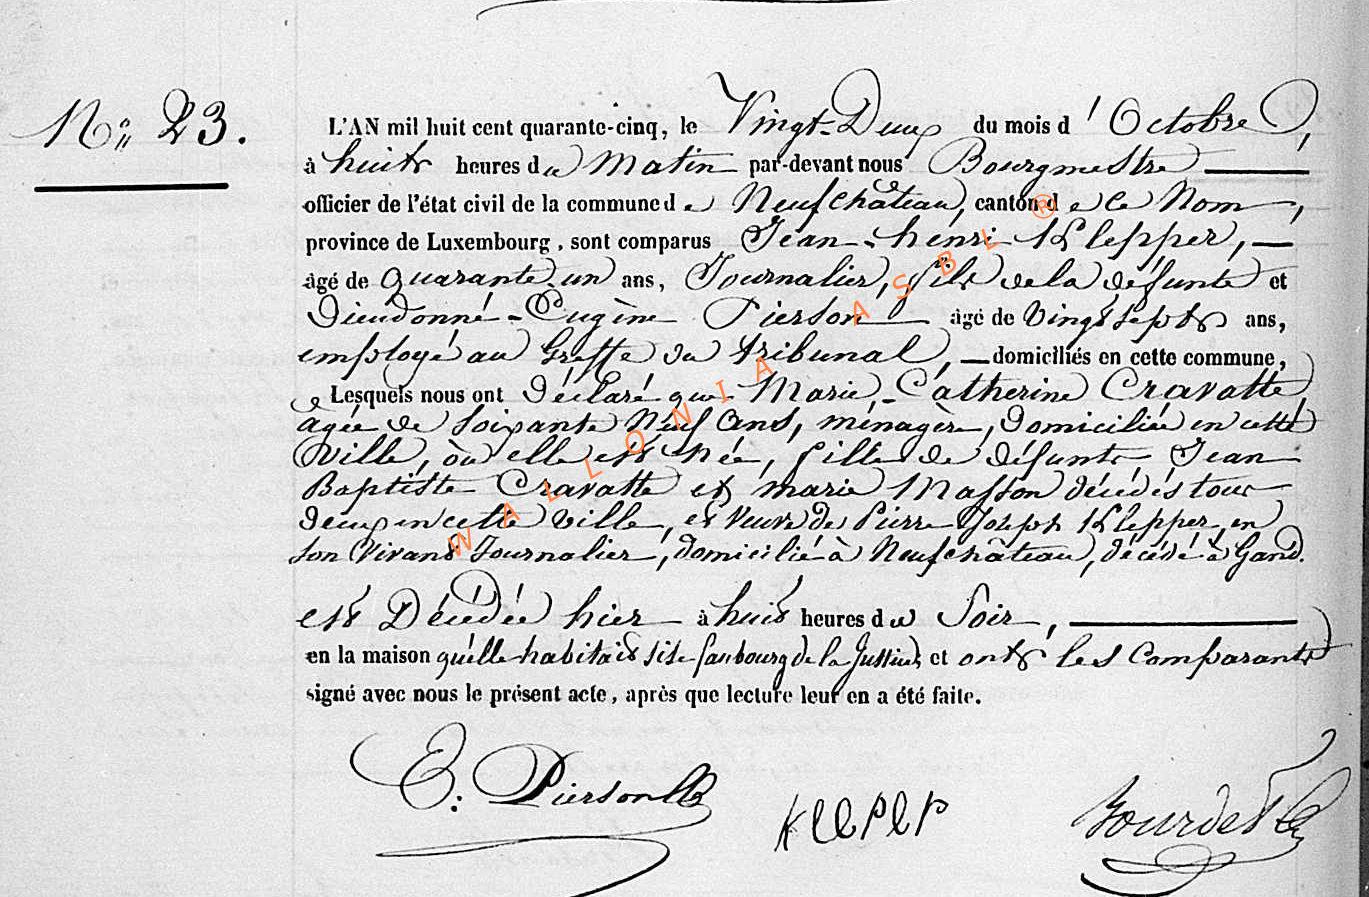 N° 23.
L'AN mil huit cent quarante-cinq, le Vingt-Deux du mois d'Octobre,
à huit heures du Matin par-devant nous Bourgmestre
officier de l'état civil de la commune de Neufchâteau, canton de ce Nom,
province de Luxembourg, sont comparus Jean-henri Klepper,
âgé de quarante-un ans, Journalier, fils de la défunte et
Dieudonné-Eugène Pierson âgé de Vingt sept ans,
employé au Greffe du tribunal, domiciliés en cette commune,
Lesquels nous ont Déclaré que Marie-Catherine Cravatte,
agée de soixante Neuf ans, ménagère, domiciliée en cette
Ville, où elle est née, fille de défunts Jean
Baptiste Cravatte et marie Masson décédés tous
deux en cette ville, et veuve de Pierre Joseph Klepper, en
son vivant Journalier, domicilié à Neufchâteau, décédé à Gand.
est Décédée hier à huit heures du Soir,
en la maison qu'elle habitait sise faubourg de la Justice, et ont les Comparants
signé avec nous le présent acte, après que lecture leur en a été faite.
E. Pierson
KlePeP
Bourdet
WALLONIA ASBL ®